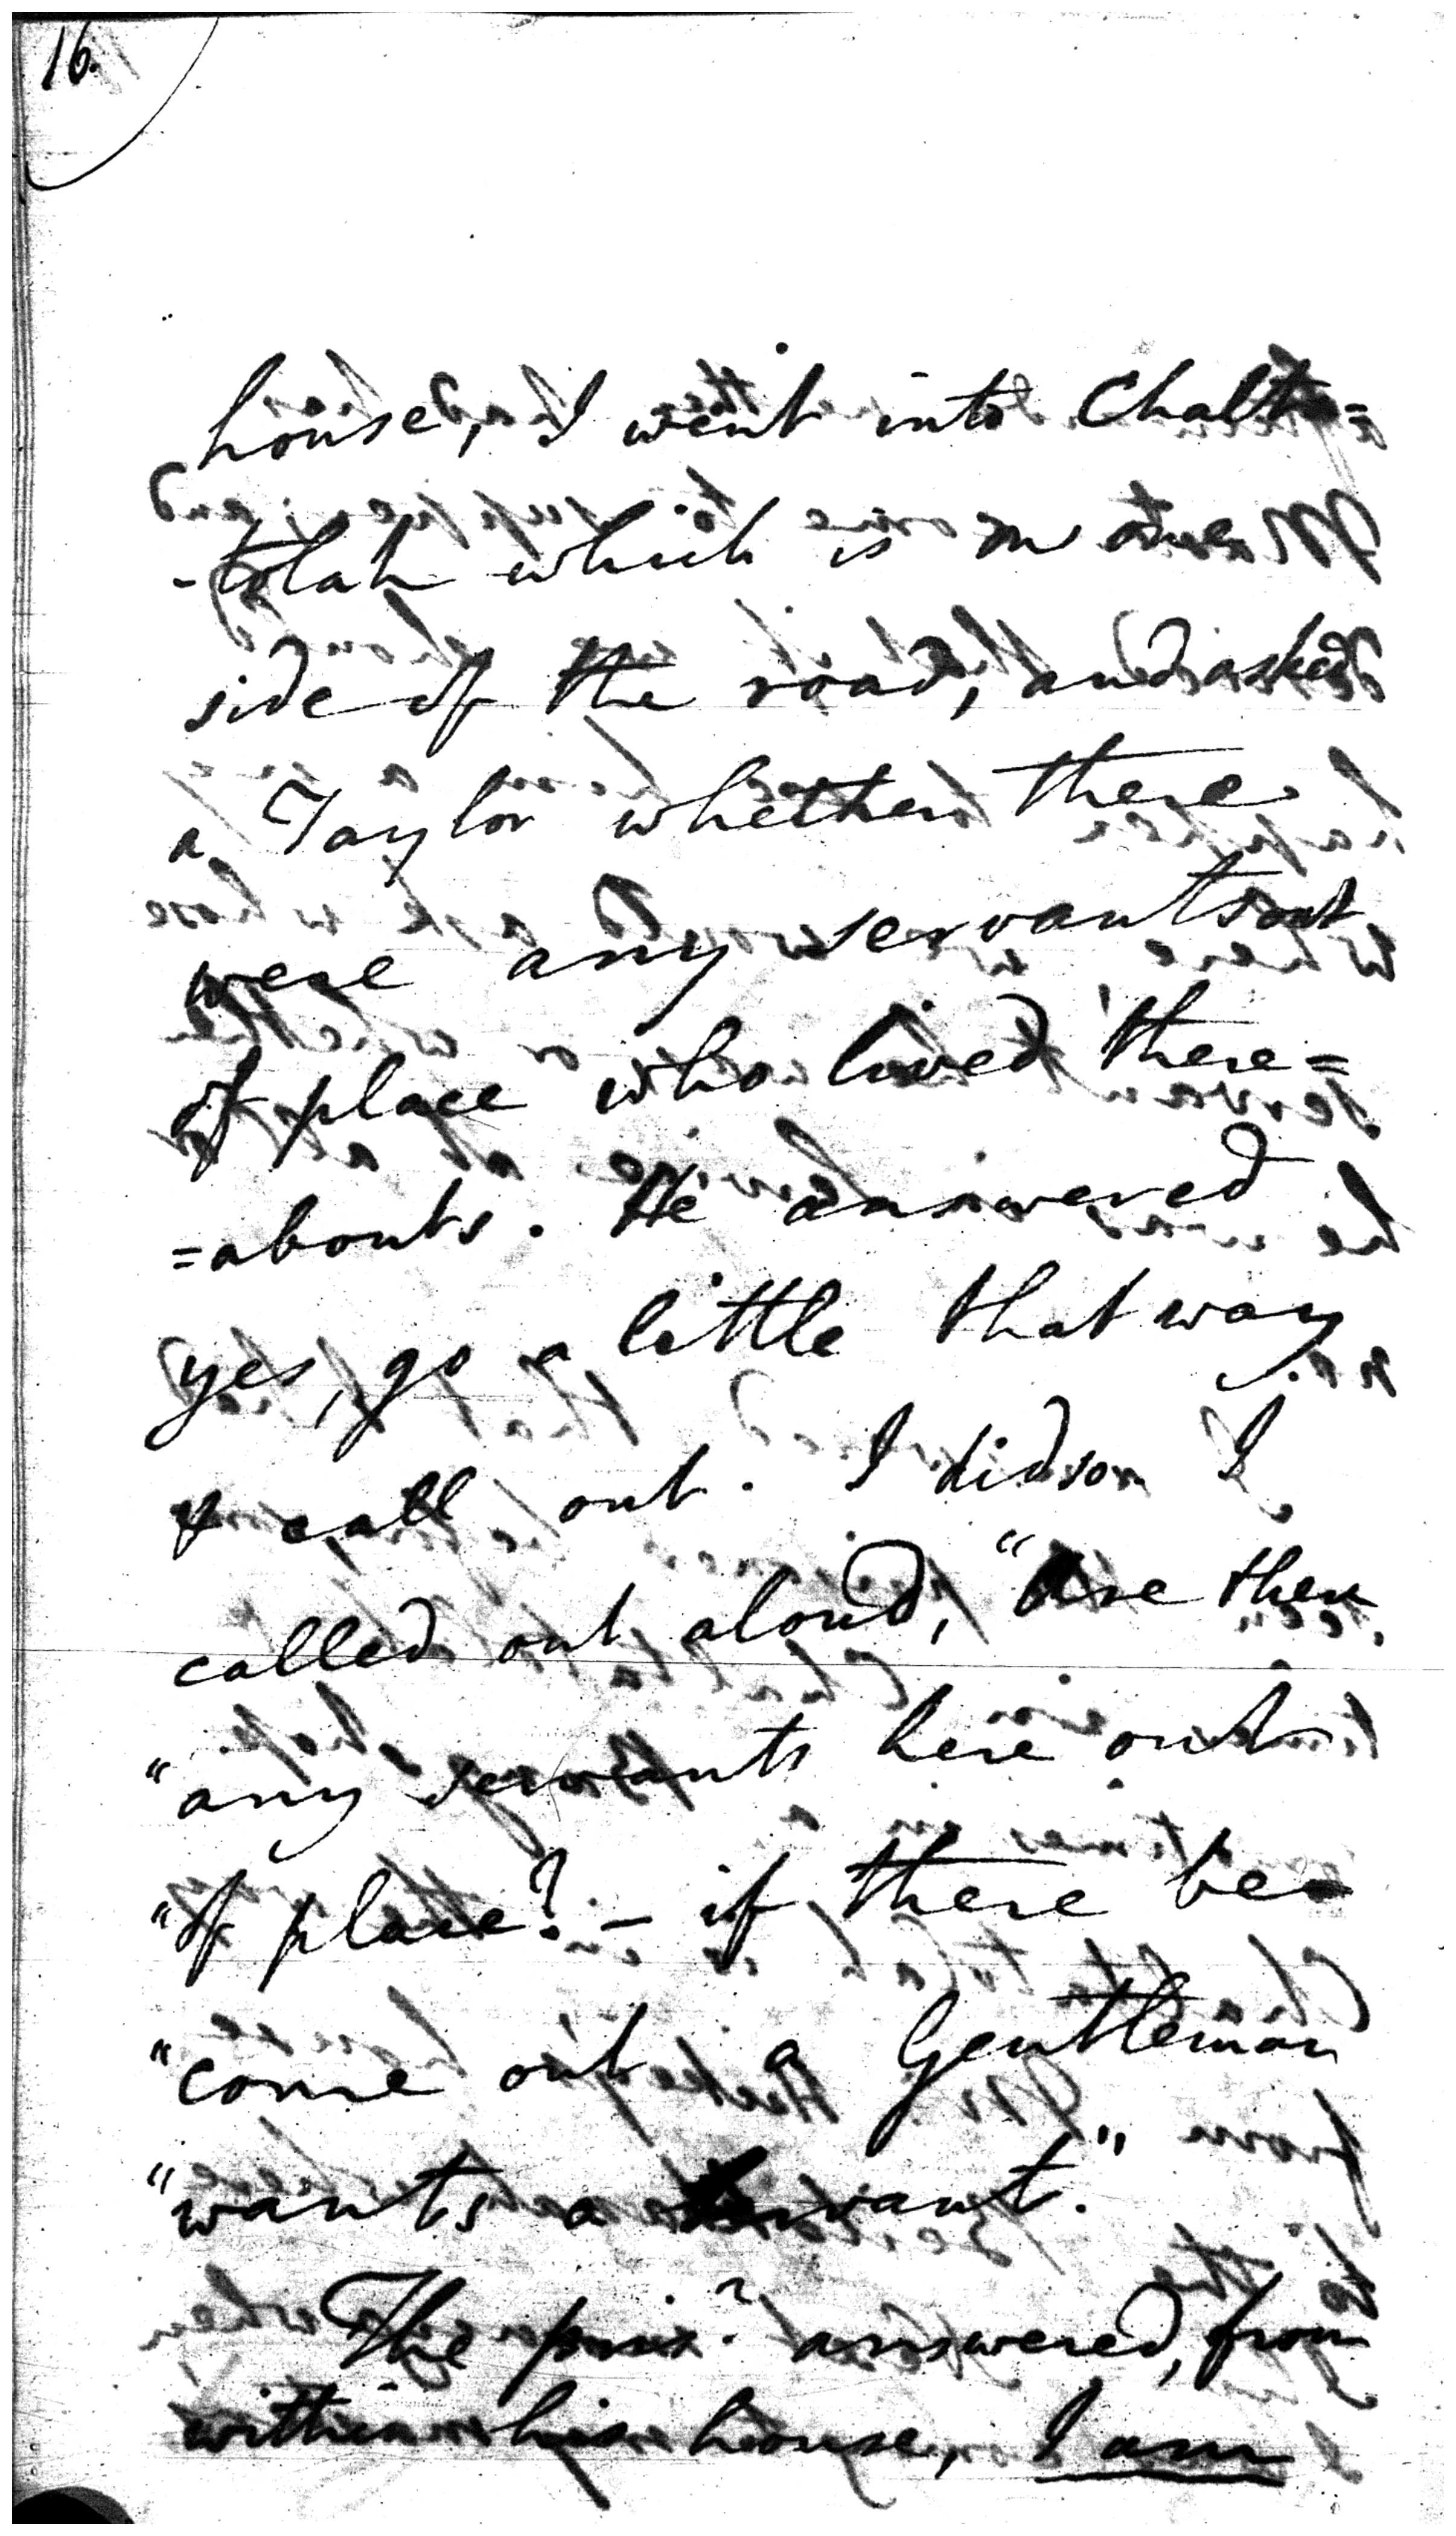 16.
house, I went into Chatta=
-tolah which is on one
side of the road, and asked
a Taylor whether there
were any servants out
of place who lived there=
=abouts. He answered
yes, go a little that way
& call out. I did so I
called out aloud, "Are there
"any servants here out
"of place? - if there be
"come out a Gentleman
"wants a servant."
The pris.r answered, from
within his house, I am